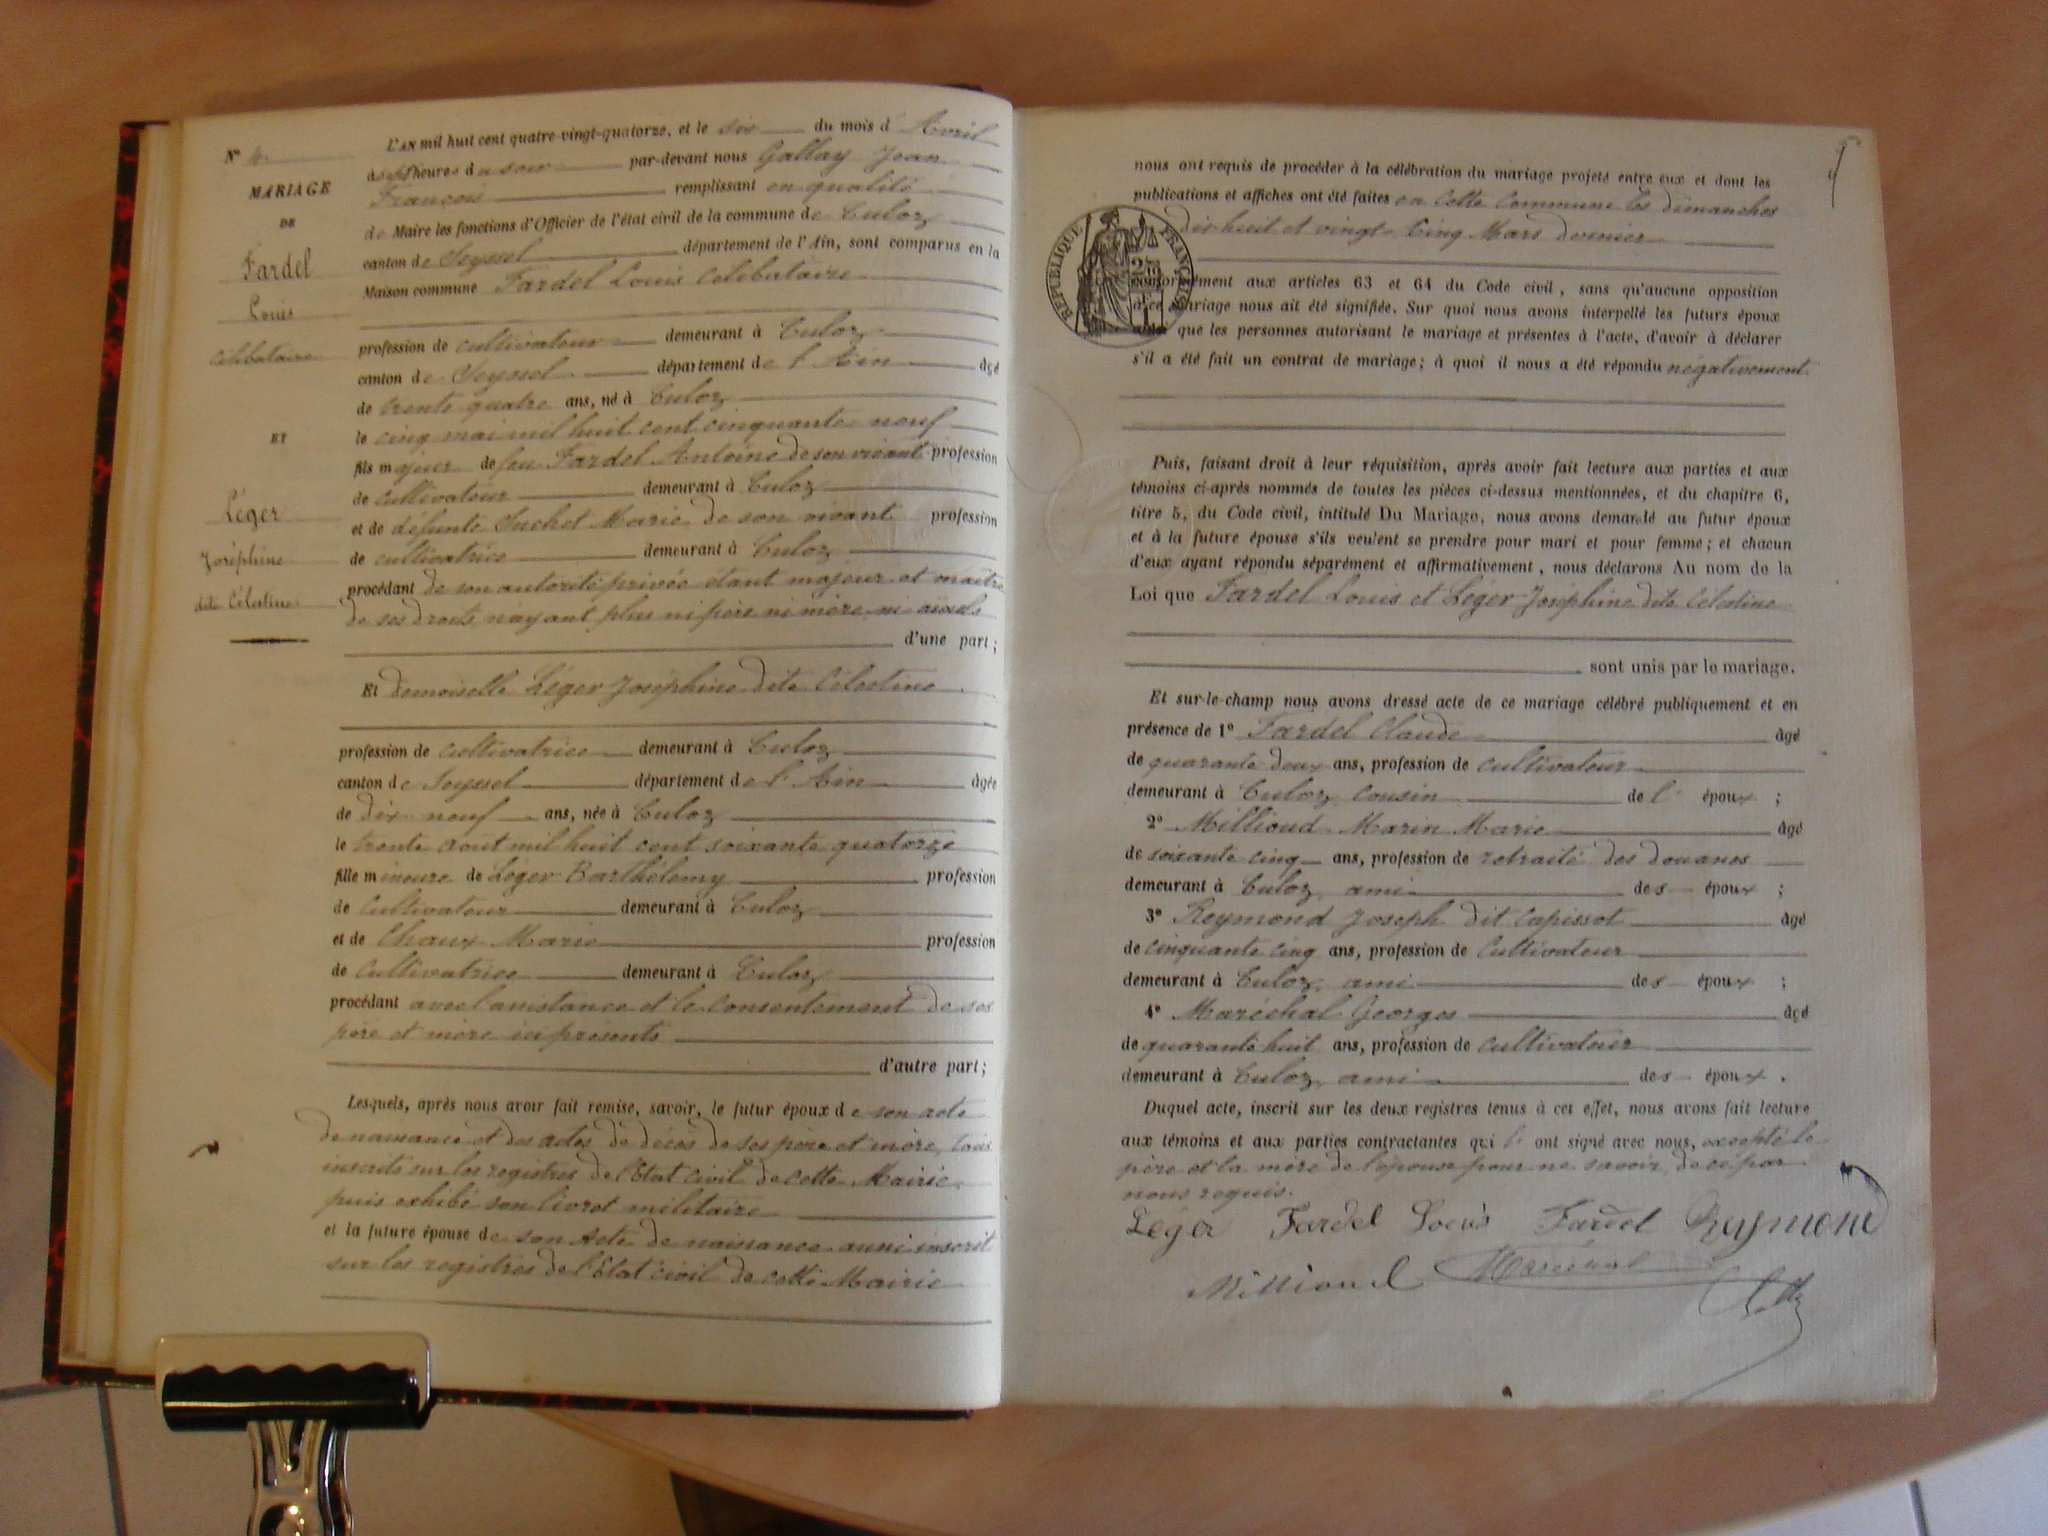 L'AN mil huit cent quatre-vingt-quatorze, et le six du mois d'Avril
à sept heures du soir par-devant nous Gallay Jean
François remplissant en qualité
de Maire les fonctions d'Officier de l'état civil de la commune de Culoz
canton de Seyssel département de l'Ain, sont comparus en la
Maison commune Fardel Louis Célibataire
profession de cultivateur demeurant à Culoz
canton de Seyssel département de l'Ain âgé
de trente quatre ans, né à Culoz
le cinq mai mil huit cent cinquante neuf
fils majeur de feu Fardel Antoine de son vivant profession
de cultivateur demeurant à Culoz
et de défunte Suchet Marie de son vivant profession
de cultivatrice demeurant à Culoz
procédant de son autorité privée étant majeur et maître
de ses droits n'ayant plus ni père ni mère ni aïeuls
d'une part;
Et demoiselle Léger Joséphine dite Célestine
profession de cultivatrice demeurant à Culoz
canton de Seyssel département de l'Ain âgée
de dix neuf ans, née à Culoz
le trente août mil huit cent soixante quatorze
fille mineure de Léger Barthélemy profession
de Cultivateur demeurant à Culoz
et de Chaux Marie profession
de Cultivatrice demeurant à Culoz
procédant avec l'assistance et le consentement de ses
père et mère ici présents
d'autre part;
Lesquels, après nous avoir fait remise, savoir, le futur époux de son acte
de naissance et des actes de décès de ses père et mère, tous
inscrits sur les registres de l'Etat civil de cette Mairie
puis exhibé son livret militaire
et la future épouse de son Acte de naissance aussi inscrit
sur les registres de l'Etat civil de cette Mairie
N° 4
MARIAGE
DE
Fardel
Louis
célibataire
ET
Léger
Joséphine
dite Célestine
nous ont requis de procéder à la célébration du mariage projeté entre eux et dont les
publications et affiches ont été faites en Cette Commune les dimanches
dix-huit et vingt-Cinq Mars dernier
RÉPUBLIQUE FRANÇAISE
conformément aux articles 63 et 64 du Code civil, sans qu'aucune opposition
à ce mariage nous ait été signifiée. Sur quoi nous avons interpellé les futurs époux
ainsi que les personnes autorisant le mariage et présentes à l'acte, d'avoir à déclarer
s'il a été fait un contrat de mariage; à quoi il nous a été répondu négativement
Puis, faisant droit à leur réquisition, après avoir fait lecture aux parties et aux
témoins ci-après nommés de toutes les pièces ci-dessus mentionnées, et du chapitre 6,
titre 5, du Code civil, intitulé Du Mariage, nous avons demandé au futur époux
et à la future épouse s'ils veulent se prendre pour mari et pour femme; et chacun
d'eux ayant répondu séparément et affirmativement, nous déclarons Au nom de la
Loi que Fardel Louis et Léger Joséphine dite Célestine
sont unis par le mariage.
Et sur-le-champ nous avons dressé acte de ce mariage célébré publiquement et en
présence de 1° Fardel Claude âgé
de quarante deux ans, profession de cultivateur
demeurant à Culoz cousin de l'époux;
2° Millioud Marin Marie âgé
de soixante cinq ans, profession de retraité des douanes
demeurant à Culoz, ami des époux;
3° Reymond Joseph dit Capissot âgé
de cinquante cinq ans, profession de Cultivateur
demeurant à Culoz, ami des époux;
4° Maréchal Georges âgé
de quarante huit ans, profession de cultivateur
demeurant à Culoz, ami des époux.
Duquel acte, inscrit sur les deux registres tenus à cet effet, nous avons fait lecture
aux témoins et aux parties contractantes qui l' ont signé avec nous, excepté le
père et la mère de l'épouse pour ne savoir, de ce par
nous requis.
Léger Fardel Louis Fardel Reymond
Millioud Maréchal